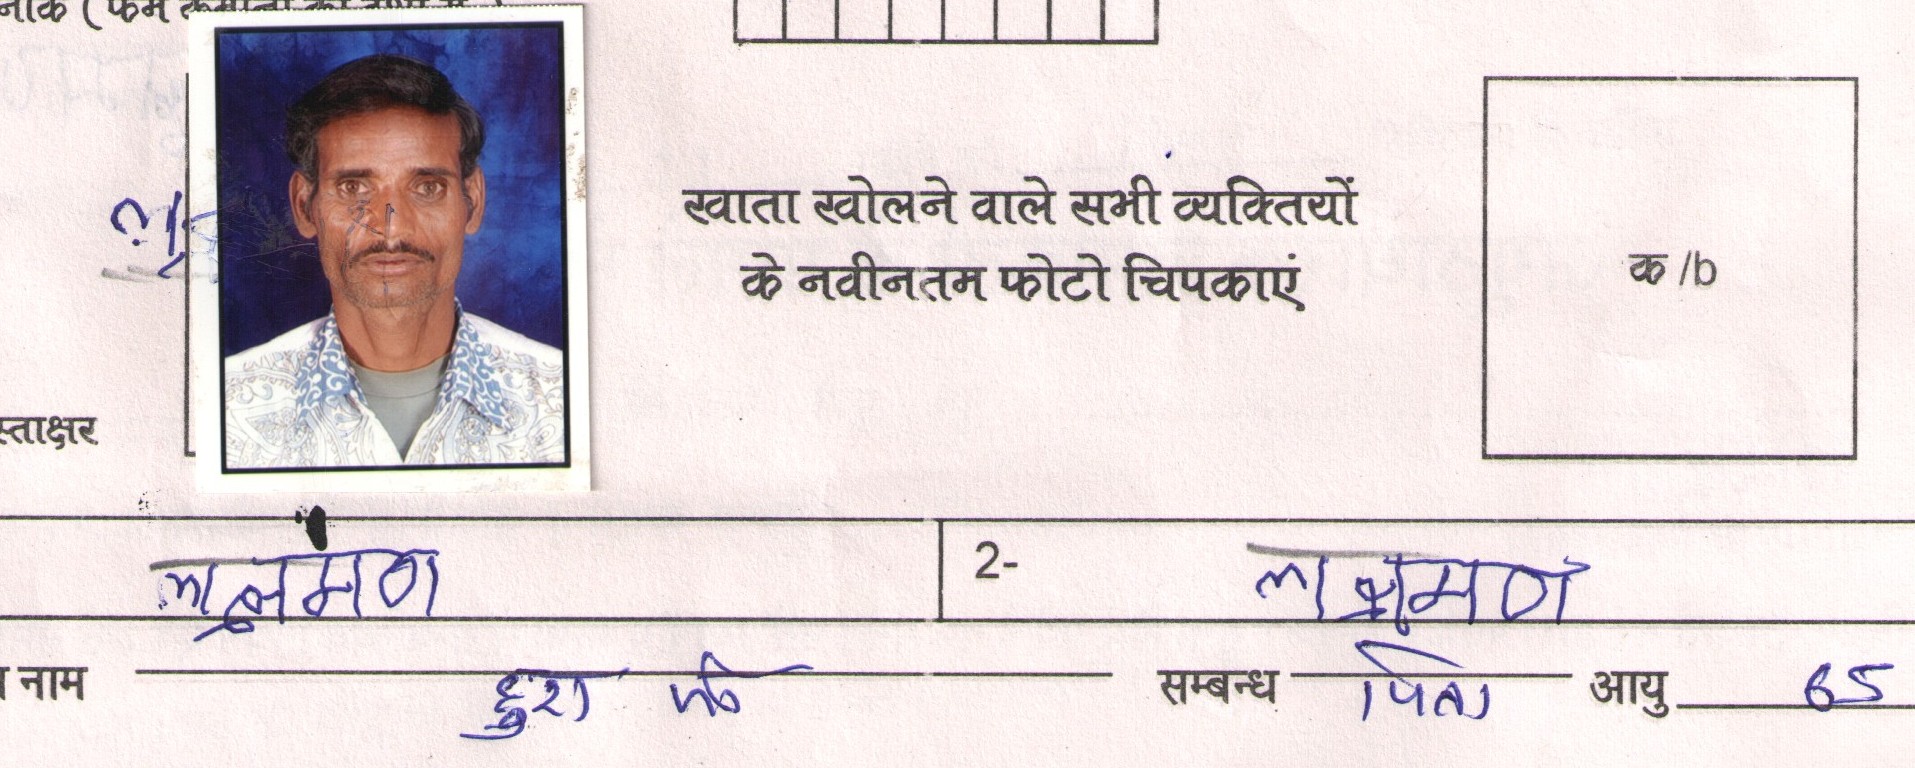 खाता खोलने वाले सभी व्यक्तियों
के नवीनतम फोटो चिपकाएं
क /b
स्ताक्षर
लक्ष्मण
2- लक्ष्मण
नाम सम्बन्ध पिता आयु 65